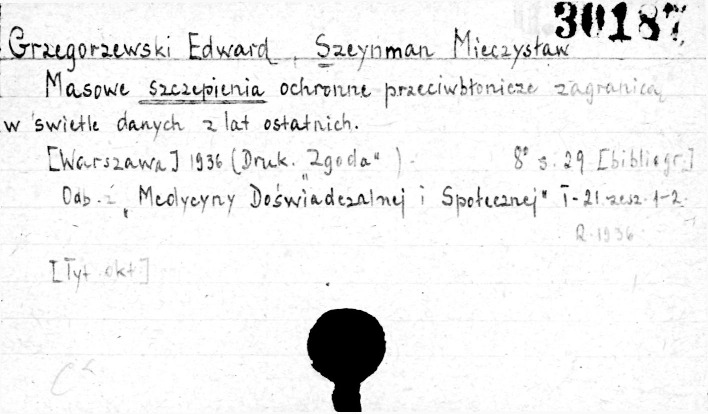 30187
Grzegorzewski Edward, Szeynman Mieczysław
Masowe szczepienia ochronne przeciwbłonicze zagranicą
w świetle danych z lat ostatnich.
[Warszawa] 1936 (Druk. "Zgoda") 8° s. 29 [bibliogr.]
Odb. z "Medycyny Doświadczalnej i Społecznej" T-21 zesz. 1-2
R. 1936
[Tyt. okł.]